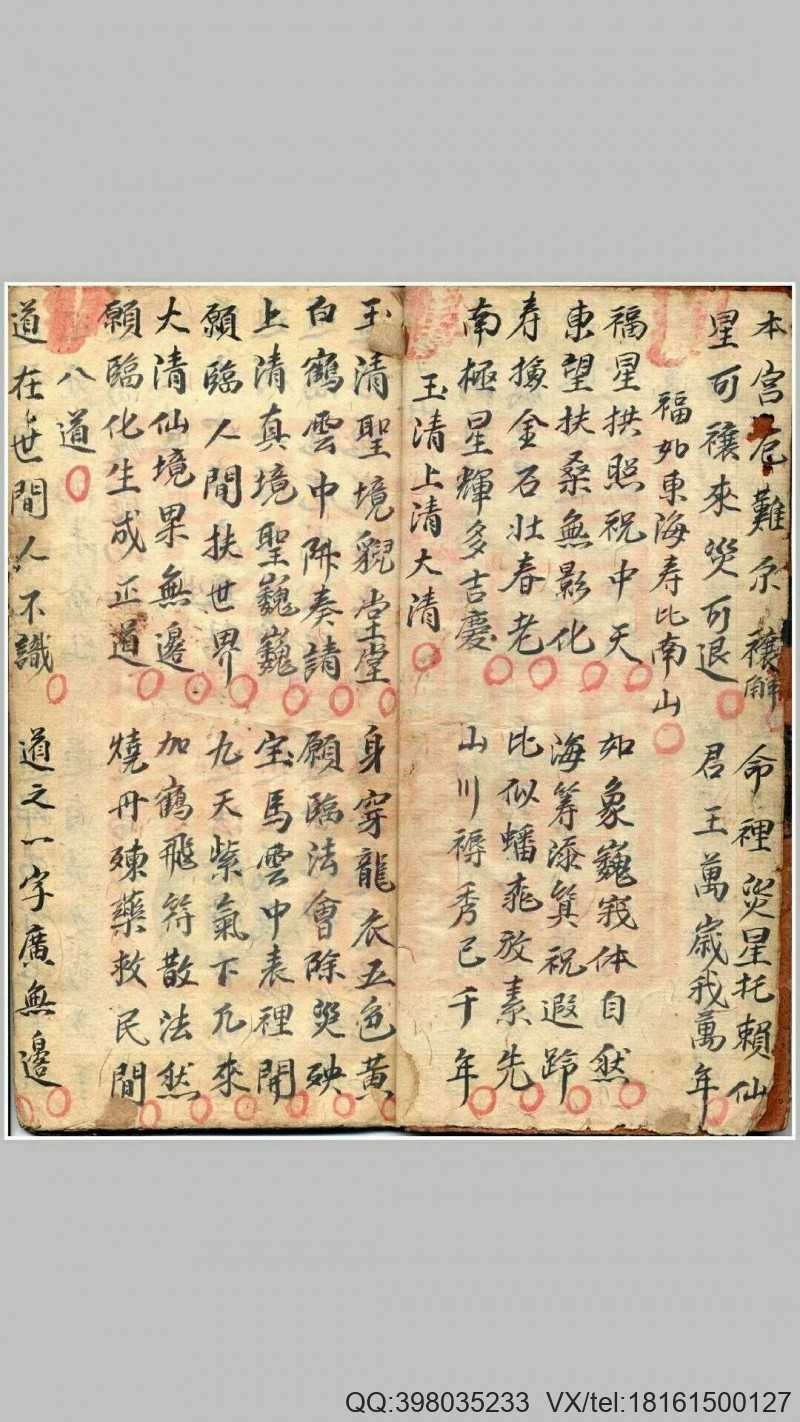 本宮厄難求禳解 命裡災星托賴仙
星可禳來災可退 君王萬歲我萬年
福如東海寿比南山
福星拱照祝中天 如象巍峩体自然
東望扶桑無影化 海筹添筭祝遐龄
寿換金石壮春老 比似蟠桃放素先
南極星輝多吉慶 山川褥秀已千年
玉清上清大清
玉清聖境貌堂堂 身穿龍衣五色黄
白鶴雲中陞奏請 願臨法會除災殃
上清真境聖巍巍 宝馬雲中表裡開
願臨人間扶世界 九天紫氣下凢來
大清仙境果無邊 加鶴飛符散法然
願臨化生成正道 燒丹煉藥救民間
八道
道在世間人不識 道之一字廣無邊
QQ:398035233 VX/tel:18161500127